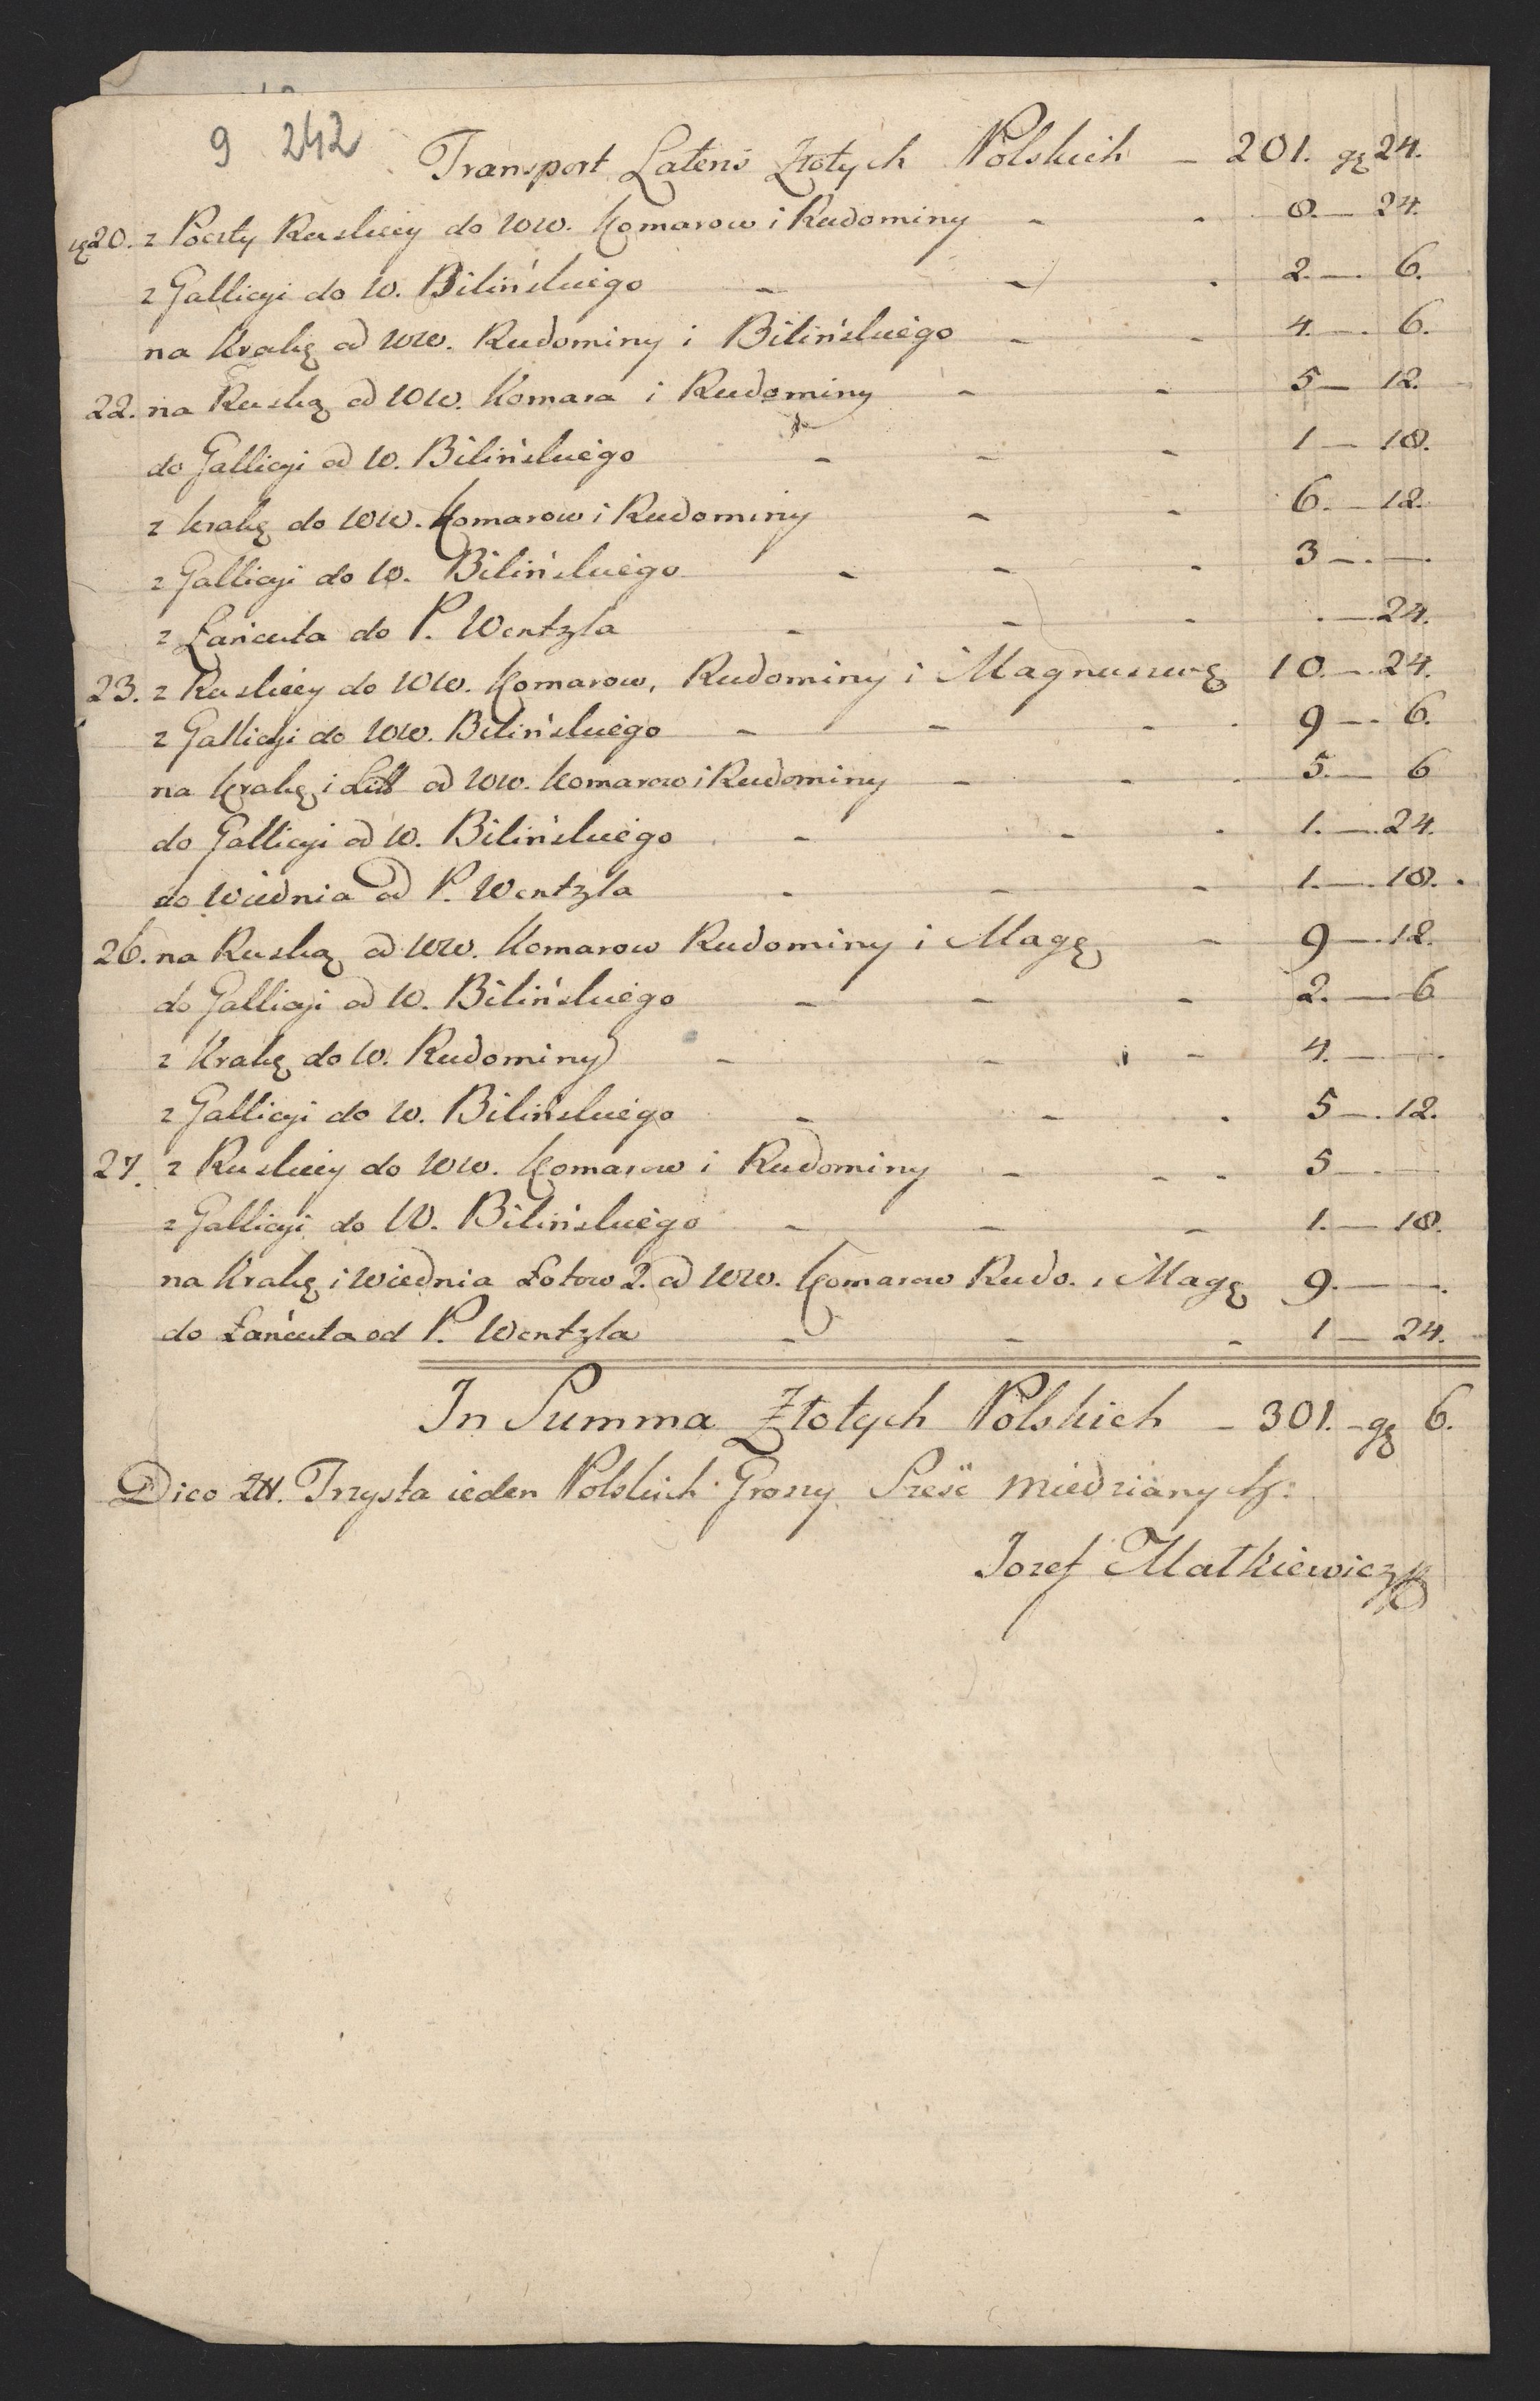 9 242
Transport Lateris Złotych Polskich – 201. gę 24.
20. z Poczty Ruskiey do WW. Komarow i Rudominy – - 8. — 24.
z Gallicyi do W. Bilińskiego – – - 2. — 6.
na Krakę od WW. Rudominy i Bilińskiego – - 4. — 6.
22. na Ruską od WW. Komara i Rudominy – - 5 — 12.
do Gallicyi od W. Bilińskiego – – - 1 — 18.
z Krakę do WW. Komarow i Rudominy – - 6. — 12.
z Gallicyi do W. Bilińskiego – – - 3 — . —.
z Łańcuta do P. Wentzla – – - . — 24.
23. z Ruskiey do WW. Komarow, Rudominy i Magnuszwę 10. — 24.
z Gallicyi do WW. Bilińskiego – – - - 9 — 6.
na Krakę i Lub od WW. Komarow i Rudominy – - - 5. — 6
do Gallicyi od W. Bilińskiego – – - 1. — 24.
do Wiednia od P. Wentzla – – - 1. — 18.
26. na Ruską od WW. Komarow Rudominy i Magę – 9 — 12.
do Gallicyi od W. Bilińskiego – – - 2. — 6
z Krakę do W. Rudominy – – - 4. — .
z Gallicyi do W. Bilińskiego – – - 5 — 12.
27. z Ruskiey do WW. Komarow i Rudominy – - - 5 — .
z Gallicyi do W. Bilińskiego – – – 1. — 18.
na Krakę i Wiednia Łotow 2. od WW. Komarow Rudo. i Magę 9. — .
do Łańcuta od P. Wentzla – – - 1 — 24.
In Summa Złotych Polskich – 301. – gę 6.
Dico Zł. Trzysta ieden Polskich Groszy Sześć miedzianych:
Jozef Matkiewicz